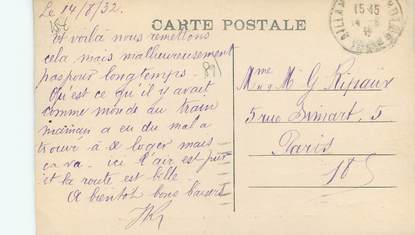 Le 14/8/32.
CARTE POSTALE
15 45
Et voilà nous remettons
cela mais malheureusement
pas pour longtemps.
Qu'est ce qu'il y avait
comme monde au train
maman a eu du mal a
trouver à se loger mais
ça va. ici l'air est pur
et la route est belle.
A bientôt bons baisers
Mme M G Ripaux
5 rue Simart, 5
Paris
18